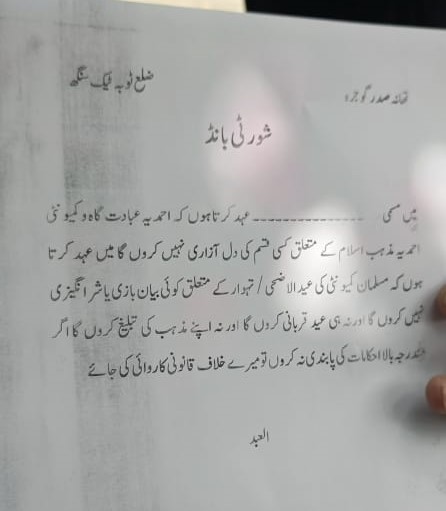 تھانہ صدر گوجرہ ضلع ٹوبہ ٹیک سنگھ
شورٹی بانڈ
میں مسمی ---------------- عہد کرتا ہوں کہ احمدیہ عبادت گاہ و کمیونٹی
احمدیہ مذہب اسلام کے متعلق کسی قسم کی دل آزاری نہیں کروں گا میں عہد کرتا
ہوں کہ مسلمان کمیونٹی کی عید الاضحی / تہوار کے متعلق کوئی بیان بازی یا شر انگیزی
نہیں کروں گا اور نہ ہی عید قربانی کروں گا اور نہ اپنے مذہب کی تبلیغ کروں گا اگر
مندرجہ بالا احکامات کی پابندی نہ کروں تو میرے خلاف قانونی کاروائی کی جائے
العبد